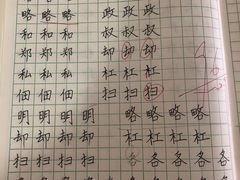 略 略 略 政 政 政
和 和 和 叔 叔 叔
郑 郑 郑 却 却 却
私 私 私 杠 杠 杠
佃 佃 佃 扫 扫 扫
明 明 明 明 略 略 略
却 却 却 却 杠 杠 杠 杠
扫 扫 扫 扫 各 各 各 各